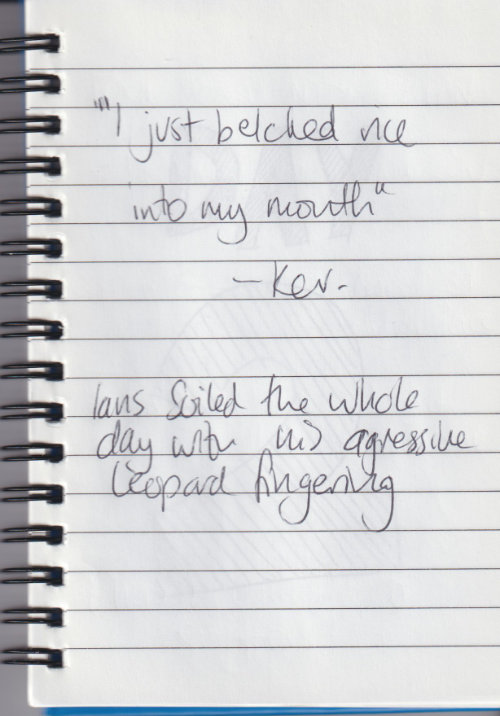 "I just belched rice
into my mouth"
- Kev.
Ians Soiled the whole
day with his agressive
Leopard fingering